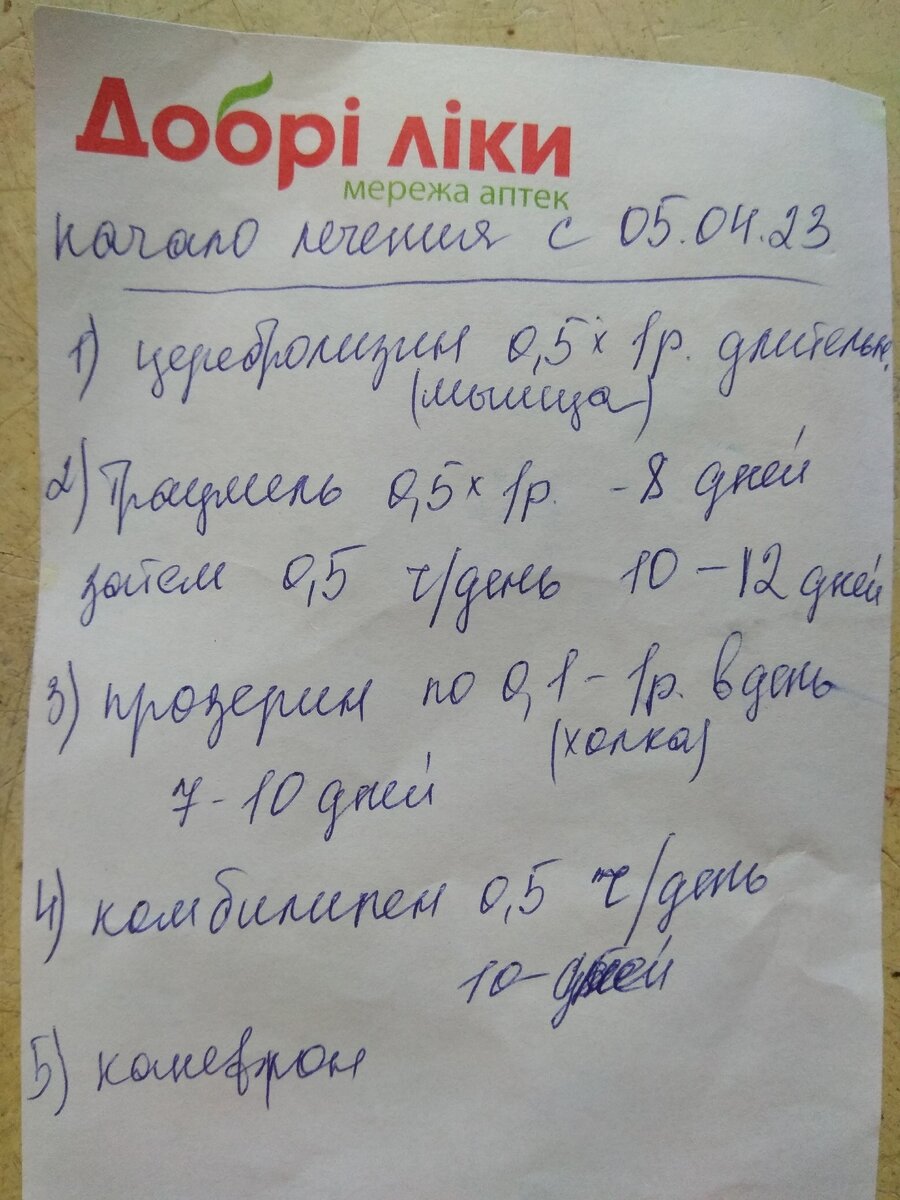 Добрі ліки
мережа аптек
начало лечения с 05.04.23
1) церебролизин 0,5 x 1р. длительн.
(мышца)
2) Траумель 0,5 x 1р. - 8 дней
затем 0,5 ч/день 10 - 12 дней
3) прозерин по 0,1 - 1р. в день
(холка)
7 - 10 дней
4) комбилипен 0,5 ч/день
10 - дней
5) каневрон